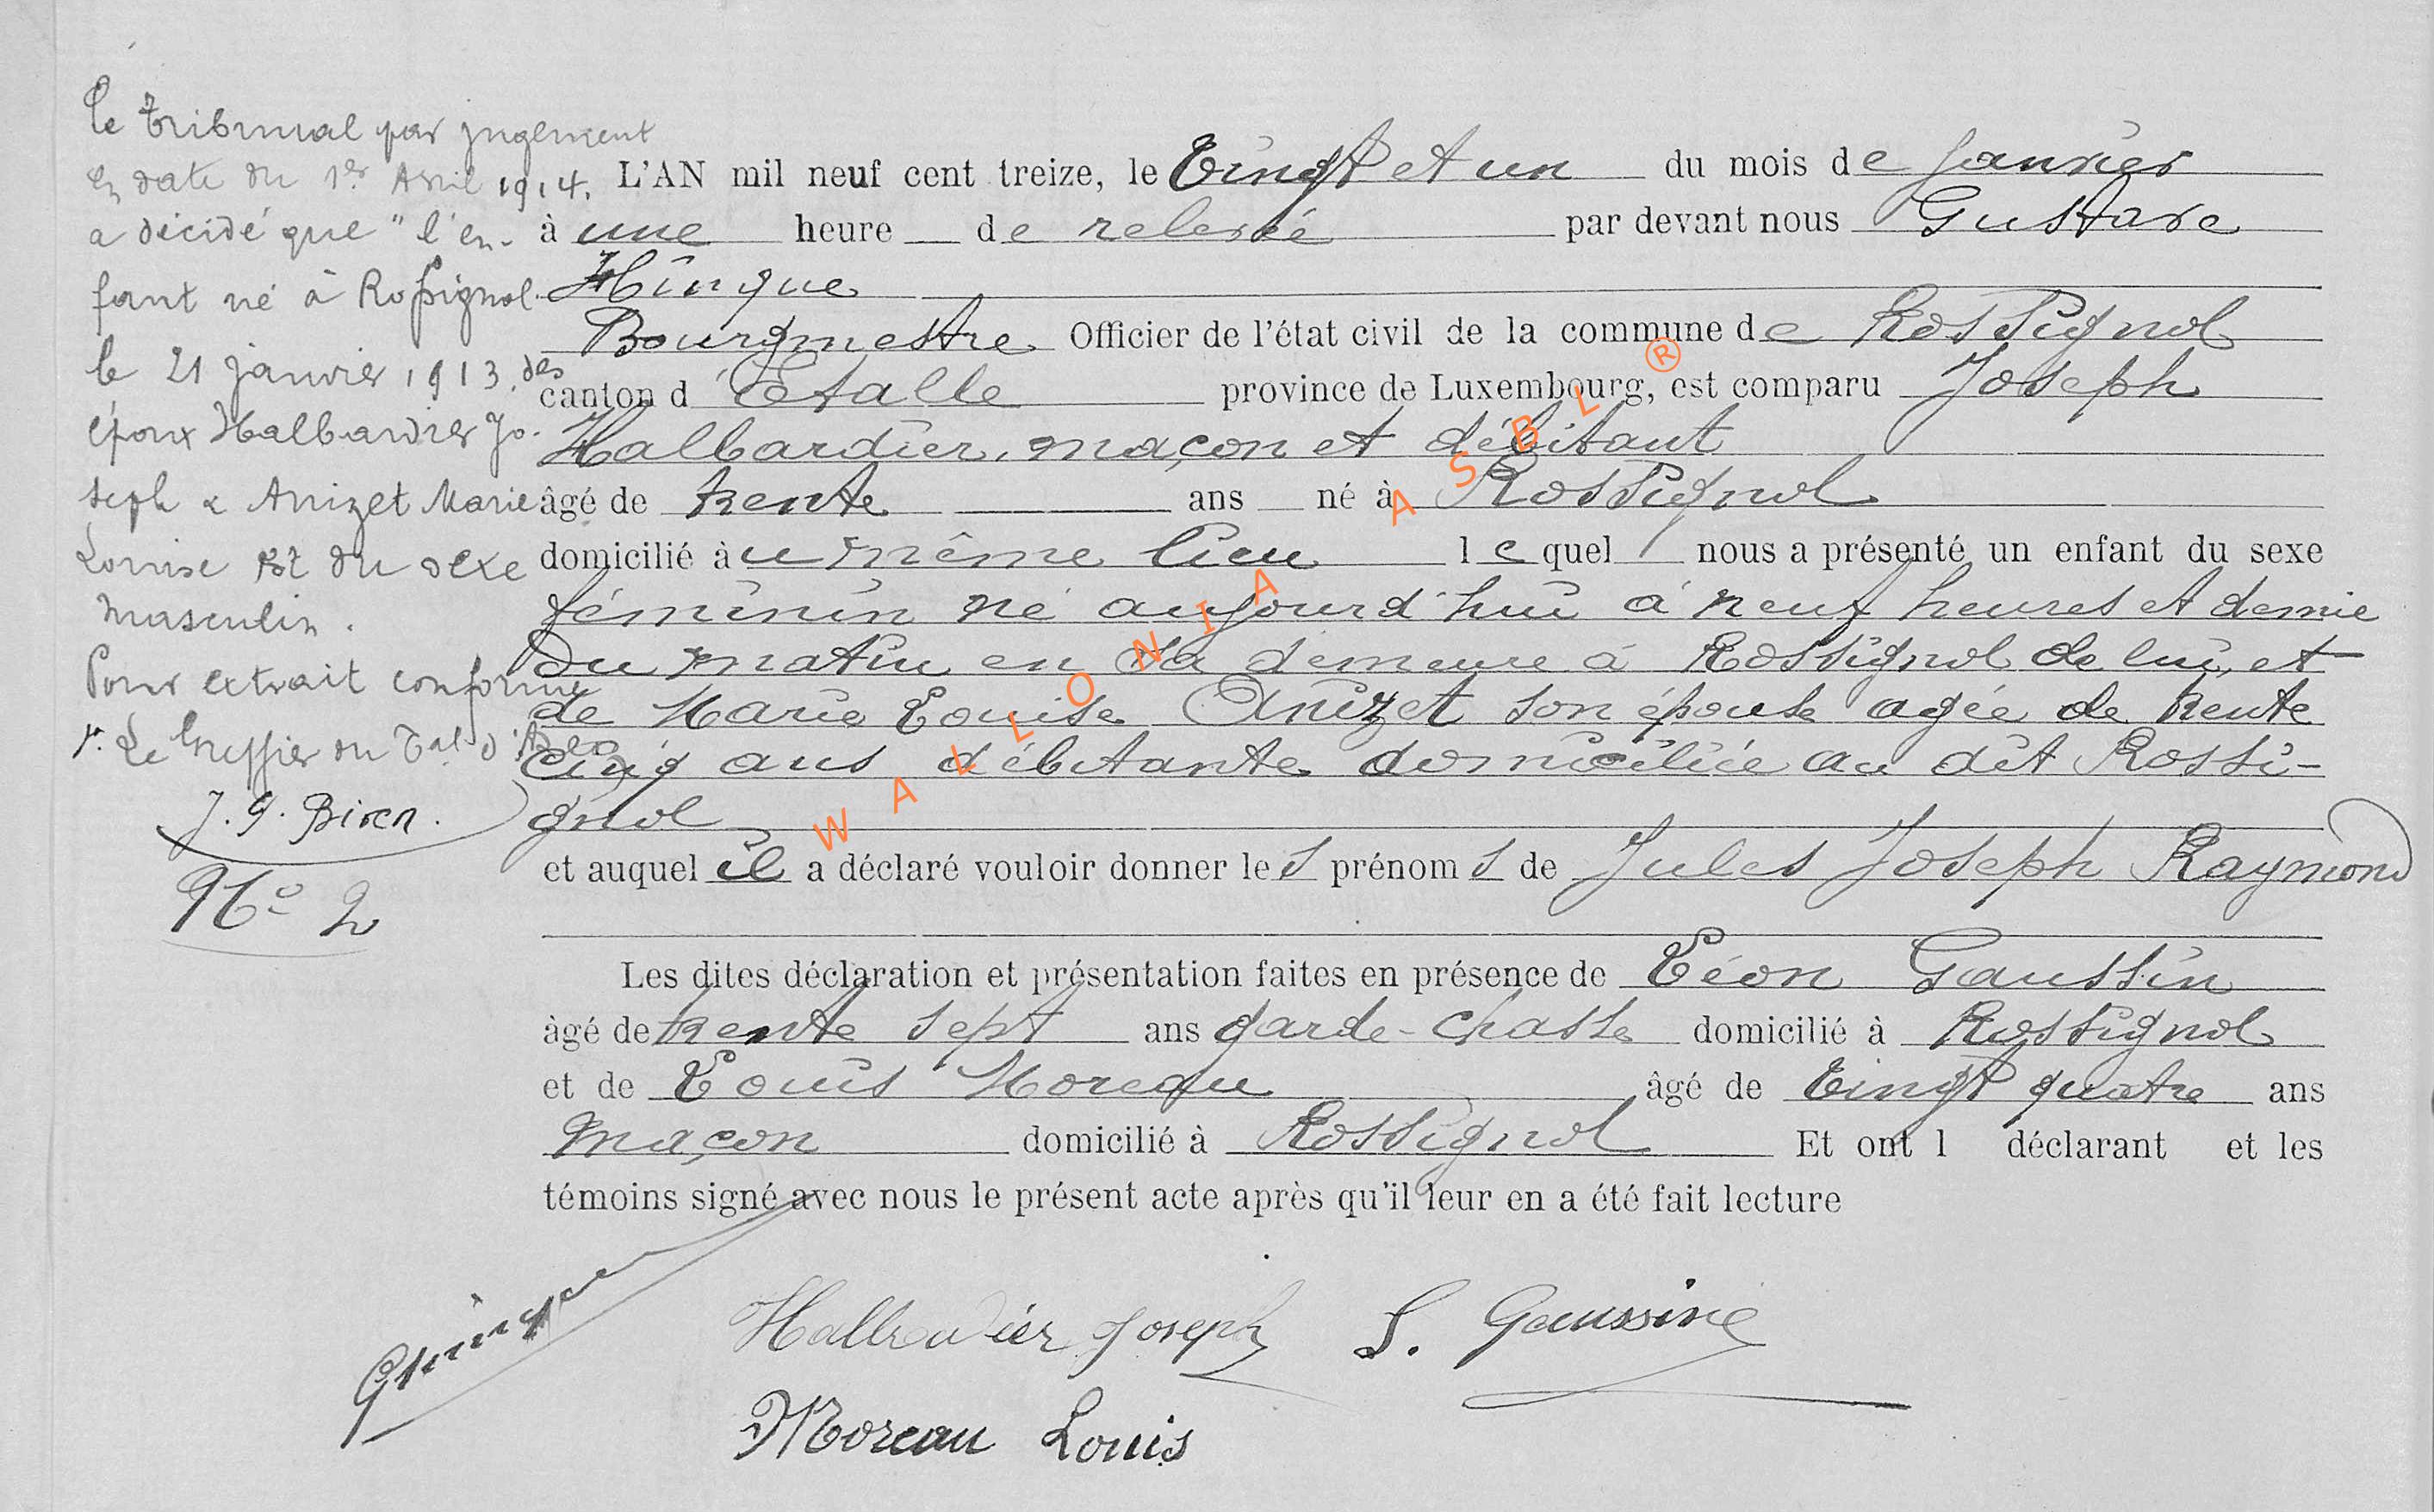 Le Tribunal par jugement
en date du 1er Avril 1914,
a décidé que "l'en-
fant né à Rossignol
le 21 janvier 1913, des
époux Halbardier Jo-
seph & Anizet Marie
Louise est du sexe
masculin.
Pour extrait conforme
Le Greffier du Tal
J. G.
No 2
L'AN mil neuf cent treize, le Vingt et un du mois de Janvier
à une heure de relevée par devant nous Gustave
Hinque
Bourgmestre Officier de l'état civil de la commune de Rossignol
canton d'Etalle province de Luxembourg, est comparu Joseph
Halbardier, maçon et débitant
âgé de trente ans né à Rossignol
domicilié au même lieu lequel nous a présenté un enfant du sexe
féminin né aujourd'hui à neuf heures et demie
du matin en sa demeure à Rossignol de lui, et
de Marie Louise Anizet son épouse agée de trente
cinq ans débitante domiciliée au dit Rossi-
gnol
et auquel il a déclaré vouloir donner les prénoms de Jules Joseph Raymond
Les dites déclaration et présentation faites en présence de Léon Gaussin
âgé de trente sept ans garde-chasse domicilié à Rossignol
et de Louis Moreau âgé de vingt quatre ans
maçon domicilié à Rossignol Et ont l déclarant et les
témoins signé avec nous le présent acte après qu'il leur en a été fait lecture
GHinque
Halbardier Joseph L. Gaussin
Moreau Louis
WALLONIA ASBL ®